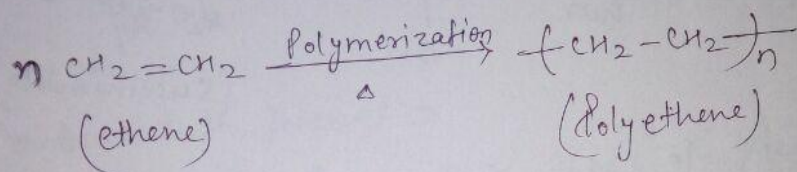 n CH2=CH2 Polymerization → -(CH2-CH2-)n
Δ
(ethene) (Polyethene)